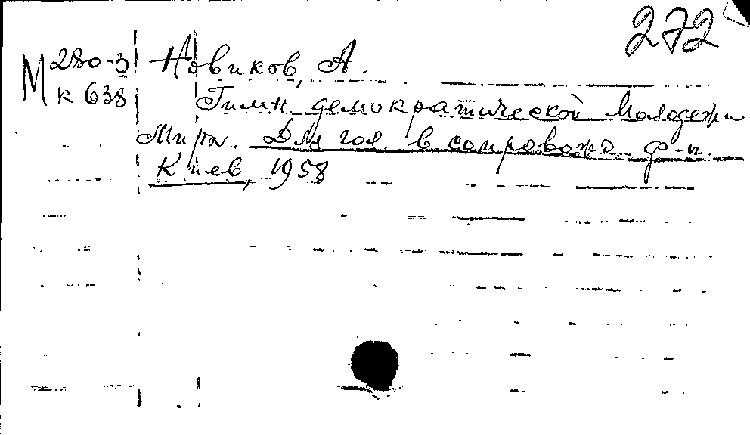 272
М 280-3
К 638
Новиков, А.
Гимн демократической молодежи
Мира. Для гол. в сопровожд. ф-п.
Киев, 1958